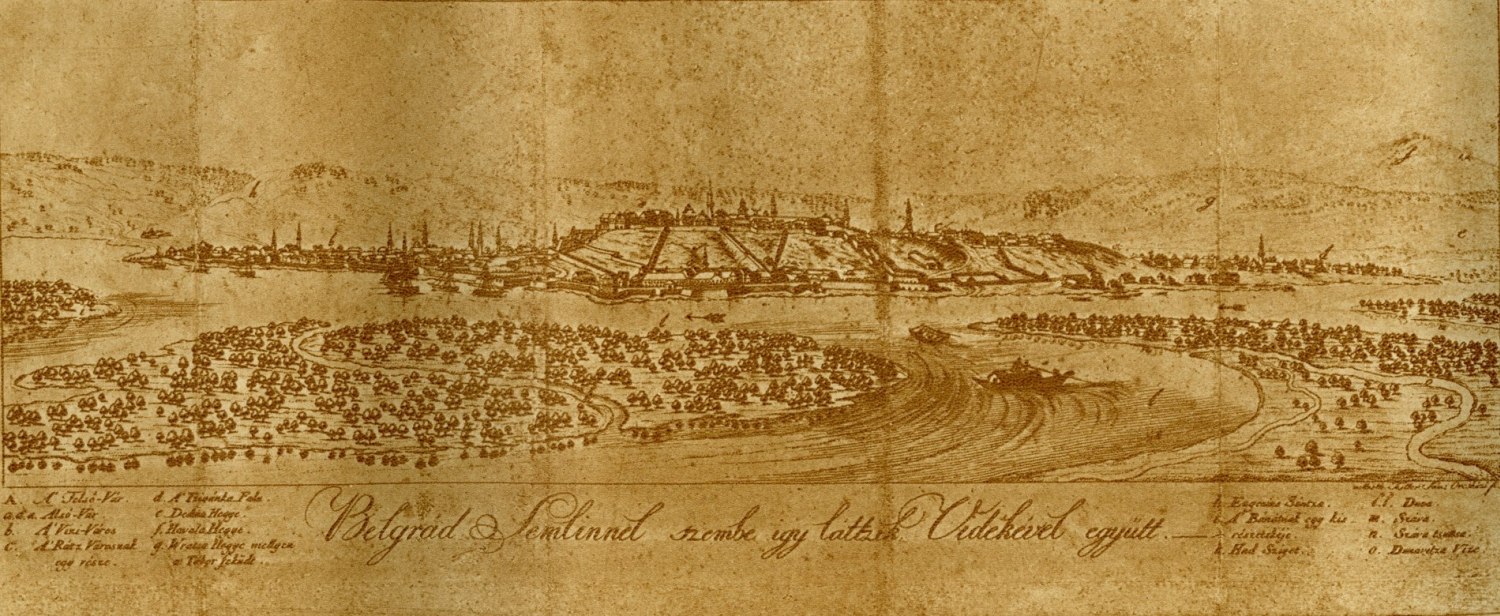 A. A' Felső-Vár.
a.a.a. Alsó-Vár
b. A' Vizi-Város
c. A' Rátz Városnak
egy része.
d. A' Tzigánka Pala.
e. Dedina Hegye.
f. Havala Hegye.
g. Hegye mellyen
a' Tábor feküdt.
Belgrád Semlinnel szembe igy látzik Vidékével együtt.
Eugenius
i. A' Banátnak egy kis
részetskéje
k. Had Sziget.
l.l. Duna
m. Szava
n. Szava
o. Dunavitza Vize.